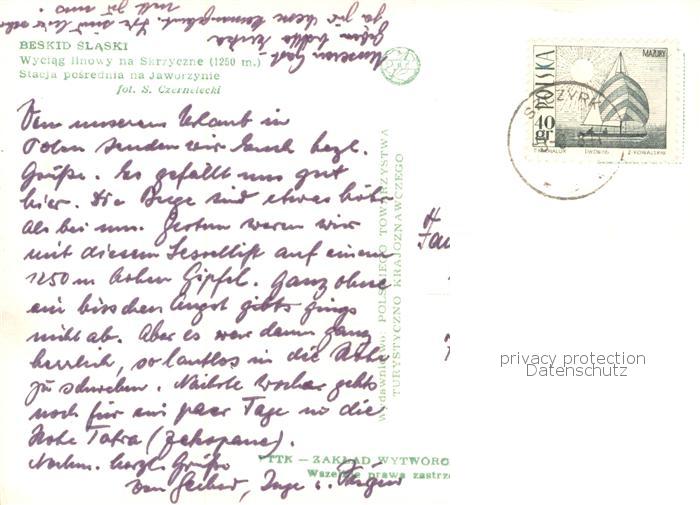 BESKID ŚLĄSKI
Wyciąg linowy na Skrzyczne (1250 m.)
Stacja pośrednia na Jaworzynie
fot. S. Czarnecki
Von unserem Urlaub in
Polen senden wir Euch herzl.
Grüße. Es gefällt uns gut
hier. Die Berge sind etwas höher
als bei uns. Gestern waren wir
mit diesem Sessellift auf einem
1250 m hohen Gipfel. Ganz ohne
ein bisschen Angst gings
nicht ab. Aber es war dann ganz
herrlich, so lautlos in die Höhe
zu schweben. Nächste Woche gehts
noch für ein paar Tage in die
Hohe Tatra (Zakopane).
Nochm. herzl. Grüße
von Inge u.
Wydawnictwo: POLSKIEGO TOWARZYSTWA
TURYSTYCZNO KRAJOZNAWCZEGO
PTTK – ZAKŁAD WYTWÓRC
Wszelkie prawa zastrz
POLSKA
MAZURY
40 gr
SZCZYRK
privacy protection
Datenschutz